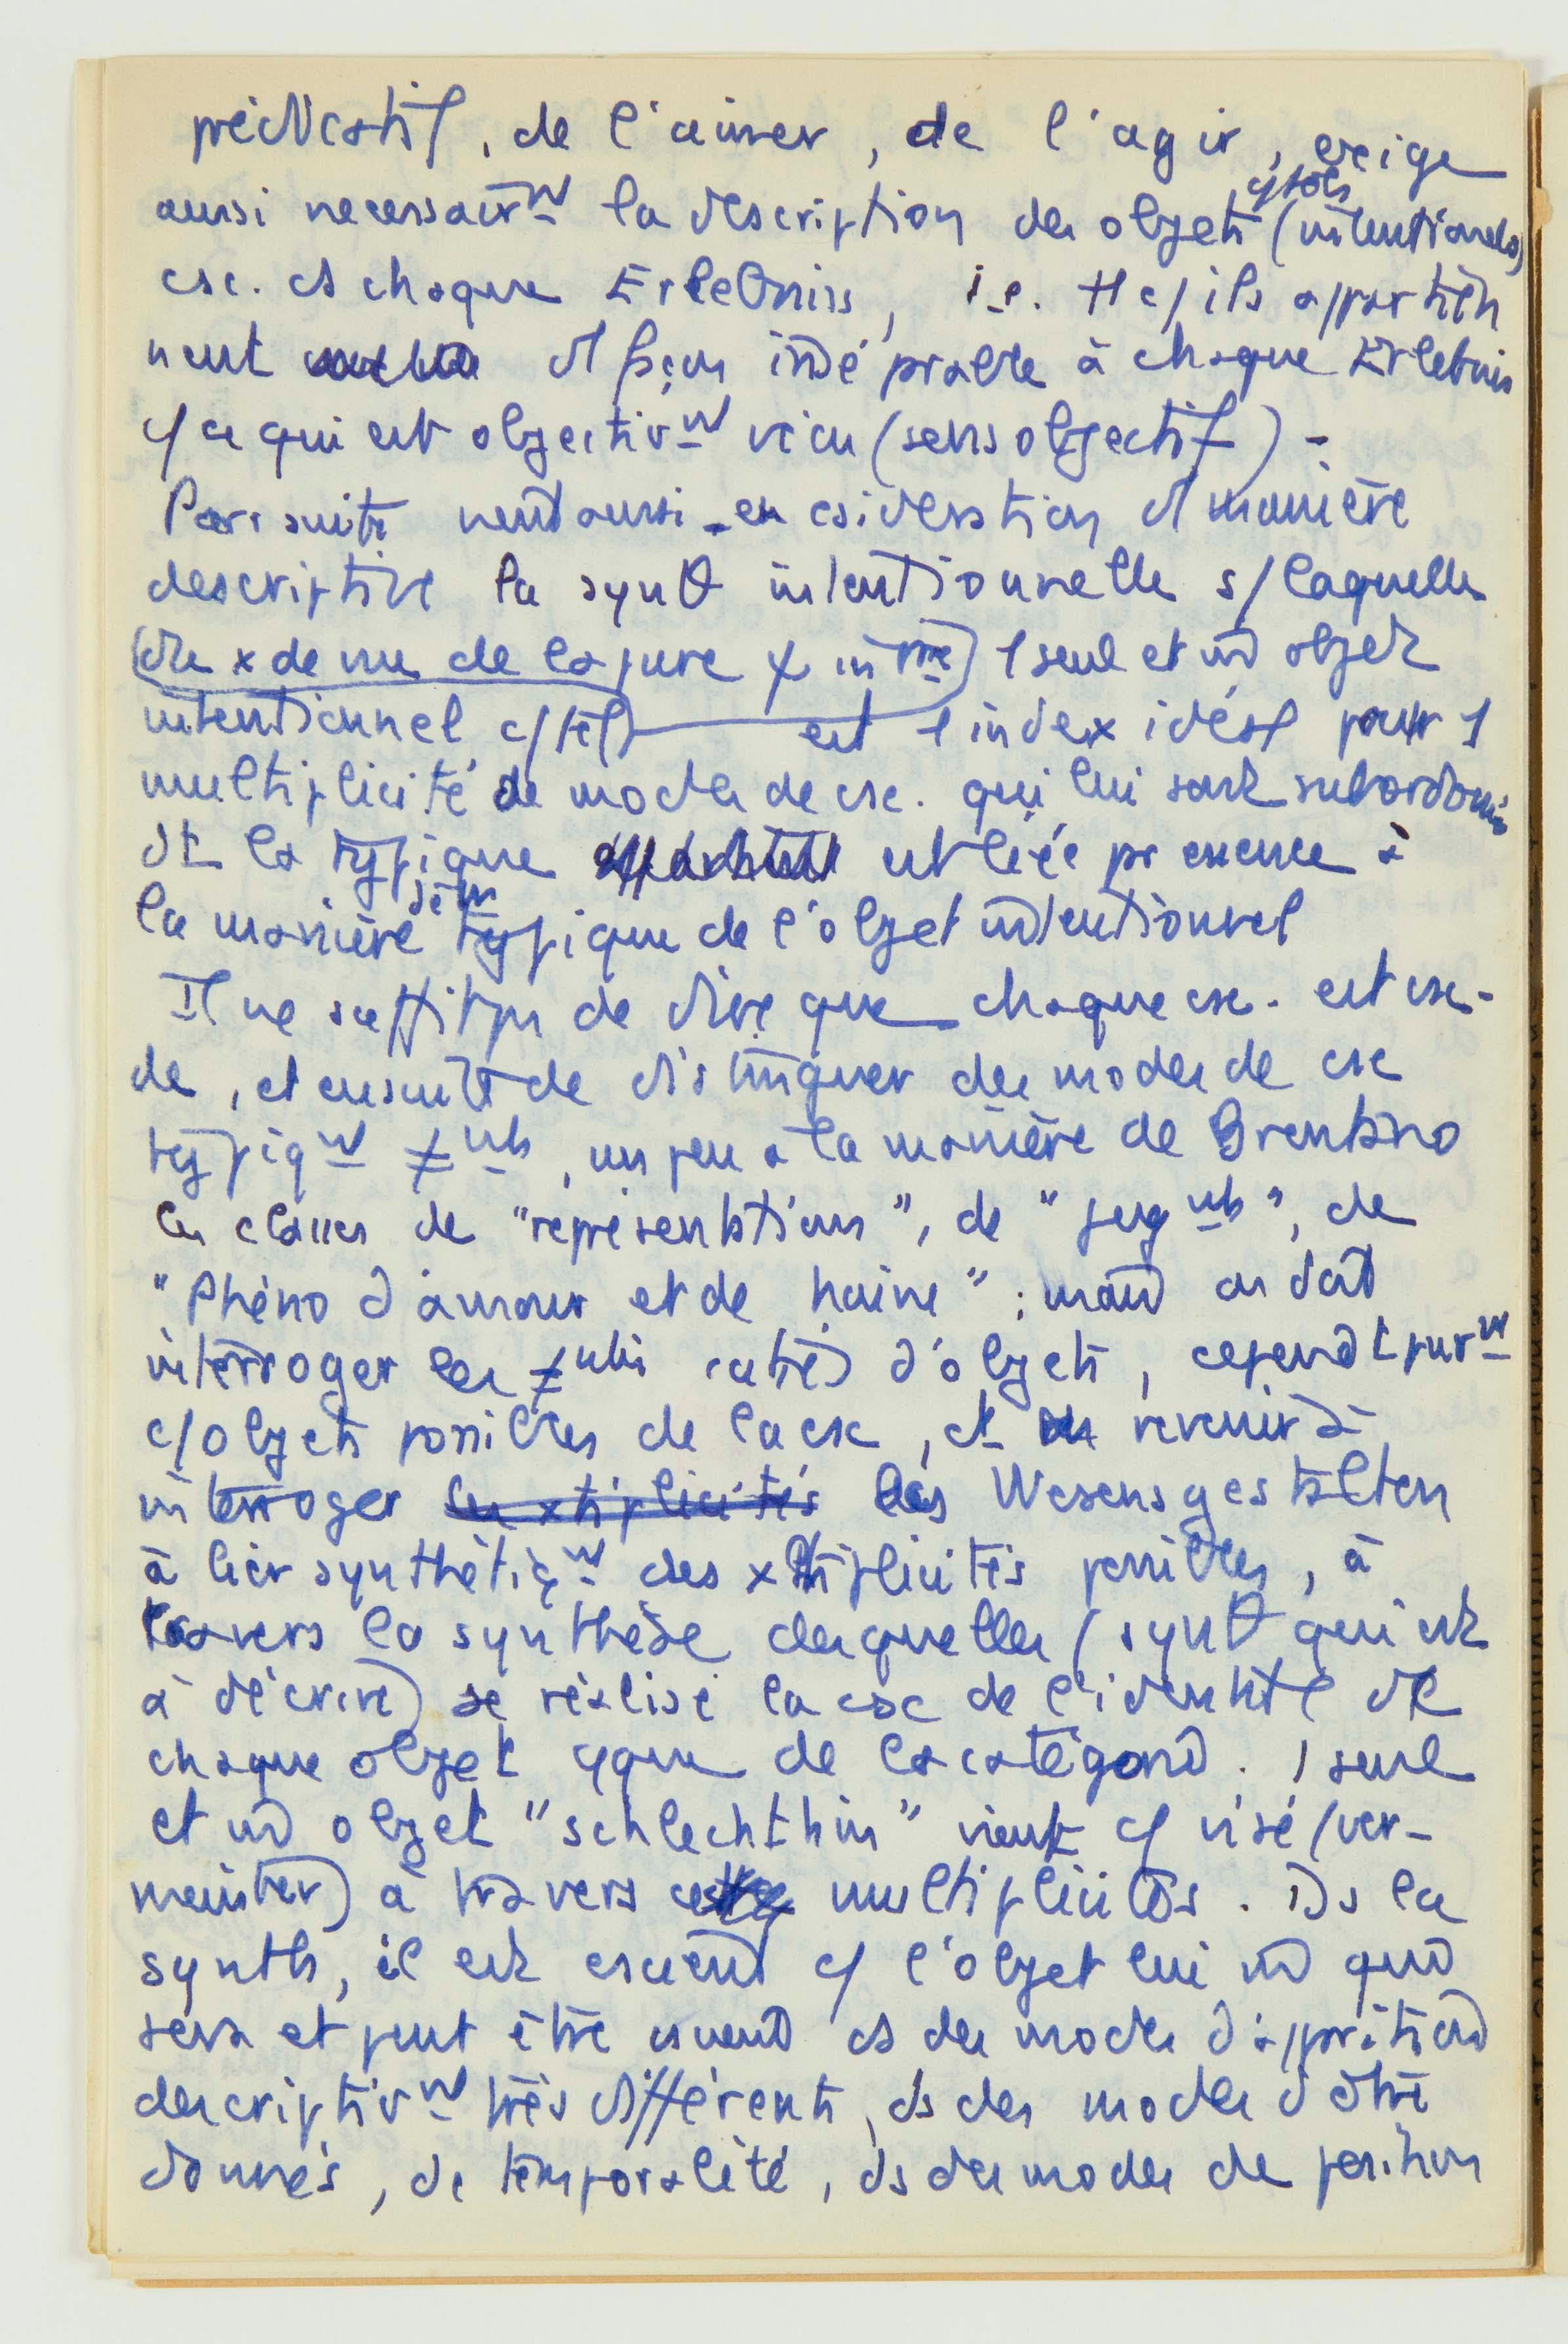 prédicatif, de l'aimer, de l'agir, exige
aussi necessairmt la description des objets (intentionels)
csc. ds chaque Erlebniss, i.e. tt c/ ils appartien
nent d façon inséparable à chaque Erlebnis
c/ ce qui est objectivmt vécu (sens objectif) -
Par suite vient aussi en csidération d manière
descriptive la synθ intentionnelle s/ laquelle
(du x de vue de la pure) 1 seul et m̄ objet
intentionnel c/ tel est 1 index idéal pour 1
multiplicité de modes de csc. qui lui sont subordonnés
dt la typique est liée pr essence à
la manière typique de l'objet intentionnel
Il ne suffit pas de dire que chaque csc. est csc.
de, et ensuite de distinguer des modes de csc
typiqmt ≠nts, un peu à la manière de Brentano
les classes de "représentations", de "jugmts", de
"Phéno d'amour et de haine" ; mais on doit
interroger les ≠ntes catés d'objets, cependt purmt
c/ objets possibles de la csc, et revenir à
interroger les xtiplicités les Wesensgestalten
à lier synthétiqmt des xtiplicités possibles, à
travers la synthèse desquelles (synθ qui est
à décrire) se réalise la csc de l'identité de
chaque objet qque de la catégorie. 1 seul
et m̄ objet "schlechthin" vient c/ visé (ver-
meinter) à travers multiplicités. Ds la
synth, il est cscient c/ l'objet lui m̄ qui
sera et peut être cscient ds des modes d'apparition
descriptivmt très différents, ds des modes d'être
donnés, de temporalité, ds des modes de position